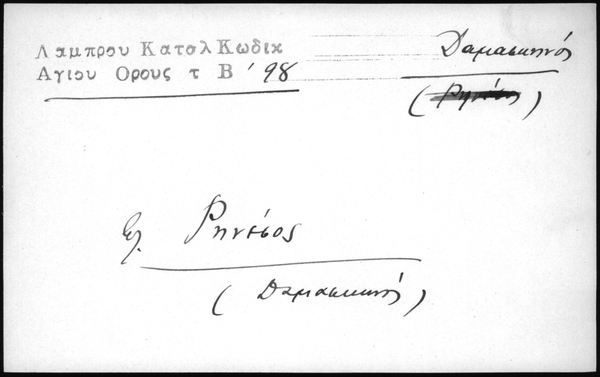 Λαμπρου Καταλ Κωδικ
Αγιου Ορους τ Β ' 98
Δαμασκηνός
Ρηνέσος
(Δαμασκηνός)